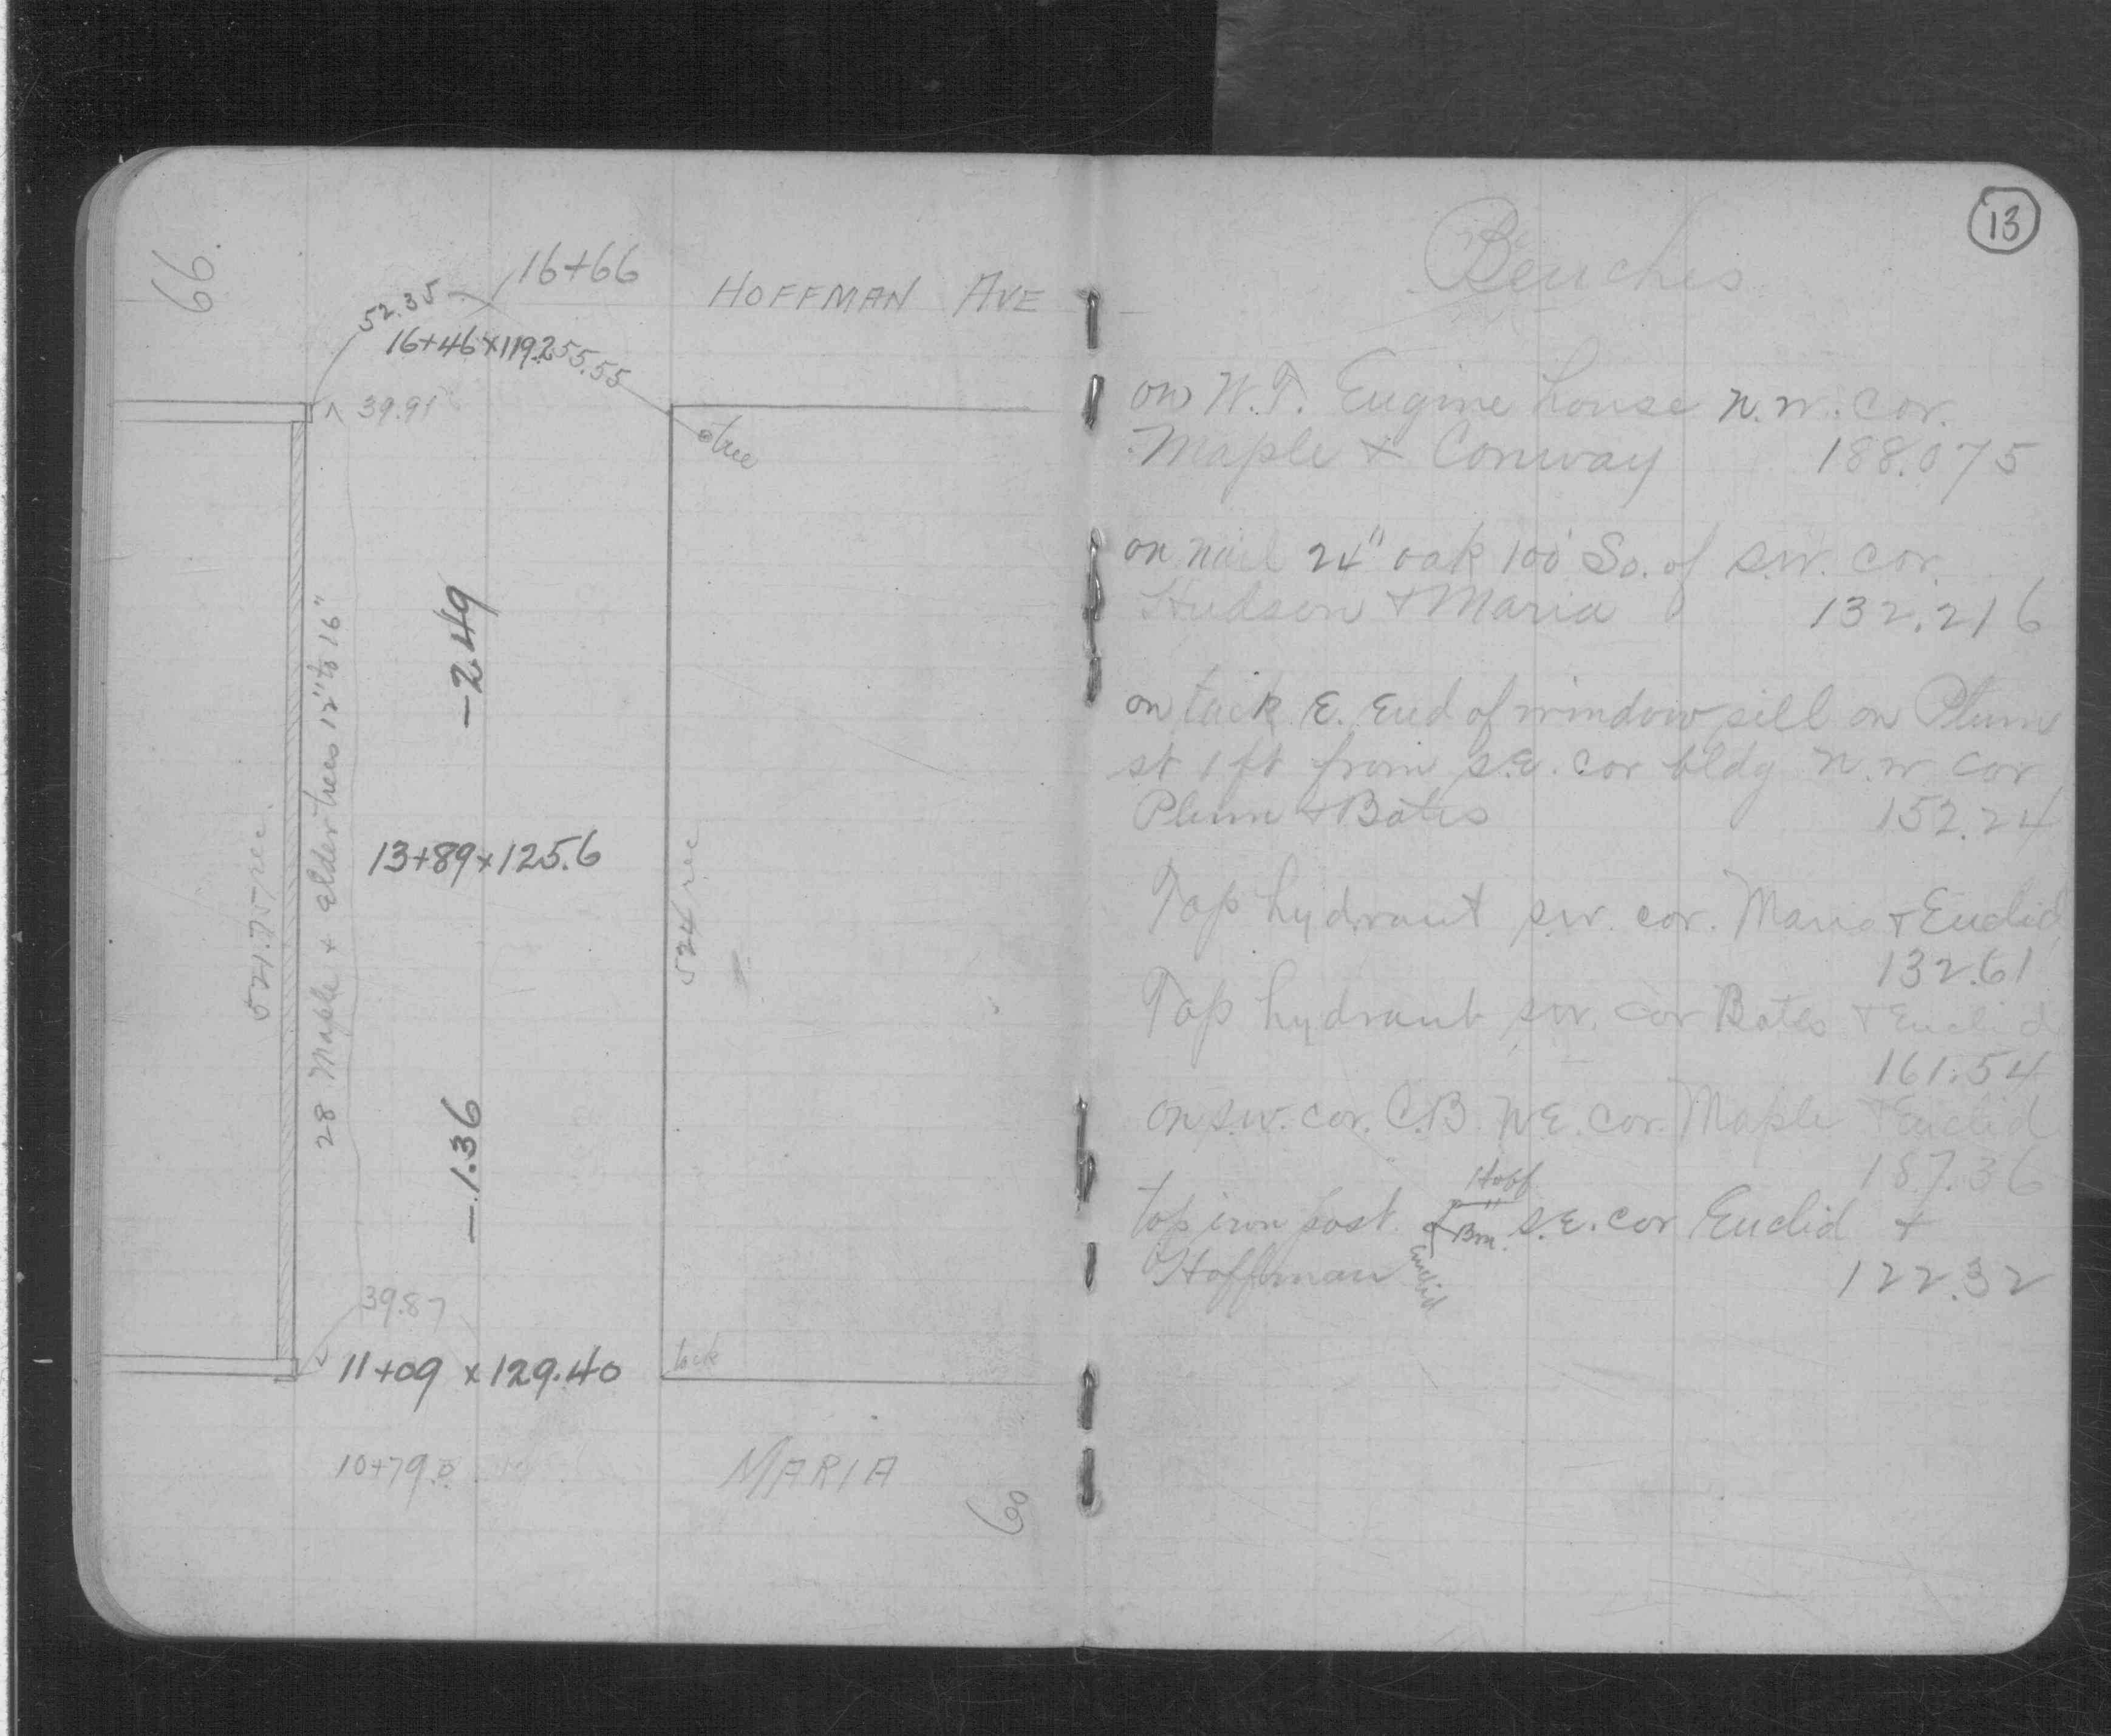 66.
16+66
HOFFMAN AVE
52.35
16+46 x 119.2
55.55
39.91
tree
-2.49
28 Maple + elder trees 12" to 16"
521.75 rec.
13+89 x 125.6
524 rec
-1.36
39.87
11+09 x 129.40
tack
10+79.
MARIA
60
13
Benches
on W.T. Engine house N.W. cor.
Maple & Conway 188.075
on nail 24" oak 100' So. of S.W. cor.
Hudson + Maria 132.216
on tack E. End of window sill on Plum
st 1 ft from S.E. cor bldg N.W cor
Plum + Bates 152.24
Top hydrant S.W. cor. Maria + Euclid
132.61
Top hydrant S.W. cor Bates + Euclid
161.54
on S.W. cor. C.B. N.E. cor. Maple + Euclid
187.36
Hoff
top iron post. Bm. S.E. cor Euclid +
Euclid
Hoffman 122.32